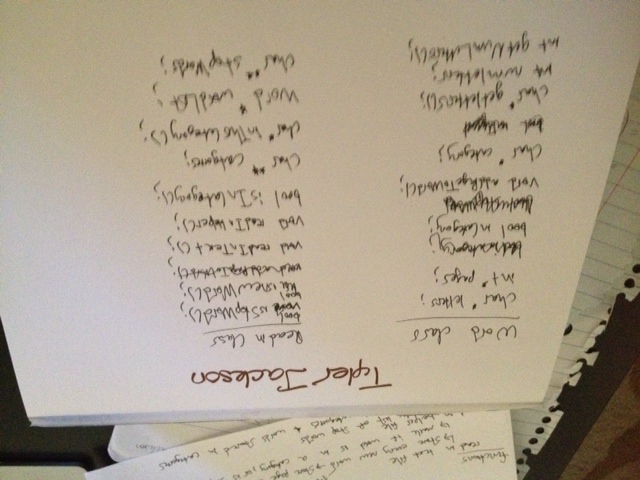 functions
read in text file
↳ store every new word → store page
↳ mark if word is in a category, or is
in helper file
list of stop words
categories & words stored in categories
Tyler Jackson
Word class
char* letters;
int* pages;
bool inCategory;
void addPageToWord();
char* category;
char* getletters();
int numletters;
int getNumLetters();
Readin Class
bool isStopWord();
bool isnewWord();
void readInText();
void readInHelper();
bool isInCategory();
char** categories;
char* inThisCategory();
Word* wordList;
char** stopWords;